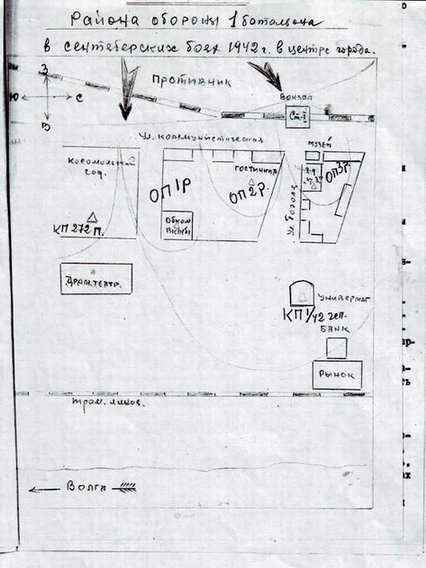 Района обороны 1 баталиона
в сентяберских боях 1942 г. в центре города.
З
Противник
Ю
С
В
Вокзал
Ст-I
Ул. коммунистическая
музей
Косомольский
сад.
гостиница
ОП 1Р
ОП 2 Р.
ОП 3 Р.
Ул. Гоголя
КП 272 П.
Обком
ВКП(б)
Драм. театр.
универмаг
КП 1/42 гсп.
БАНК
РЫНОК
трам. линия.
Волга